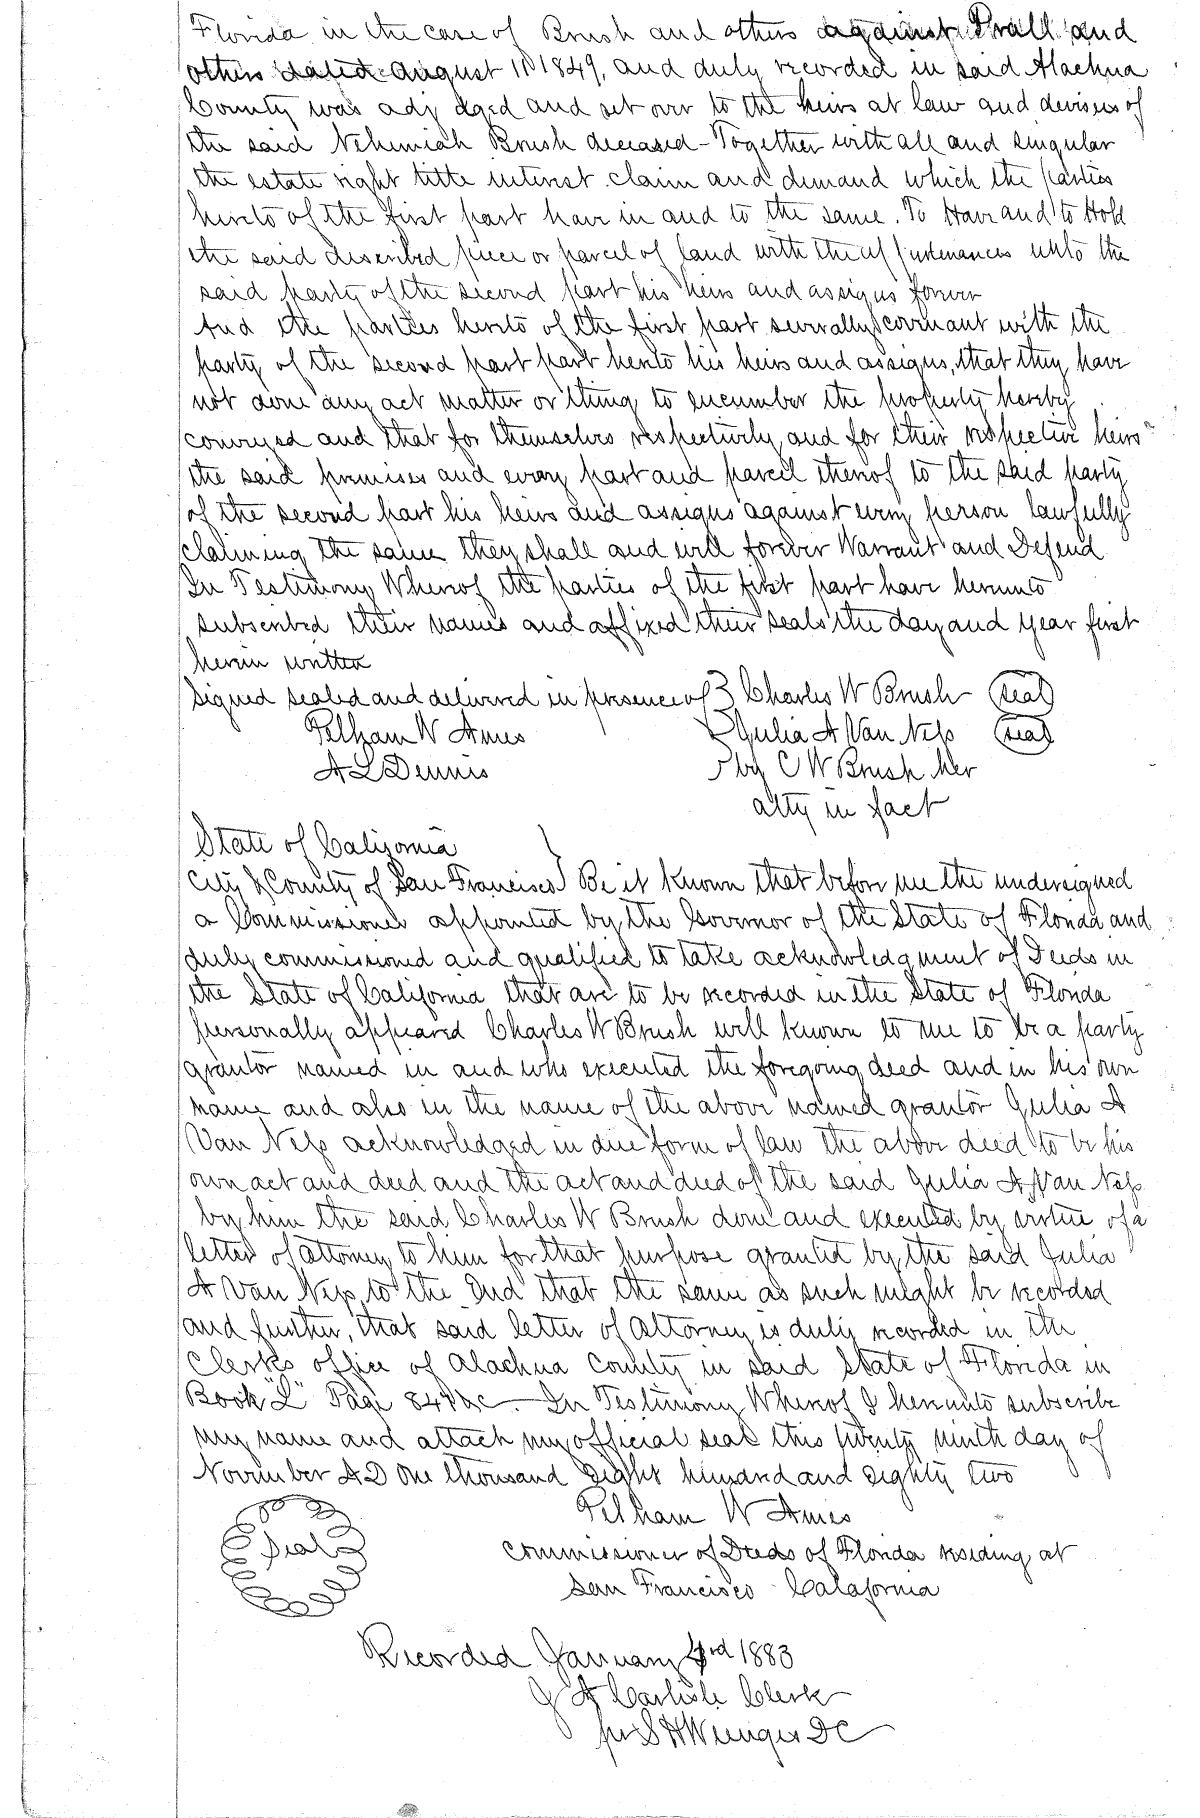 Florida in the case of Brush and others against Prall and
others dated August 11 1849, and duly recorded in said Alachua
County was adj dged and set over to the heirs at law and devisees of
the said Nehemiah Brush deceased - Together with all and singular
the estate right title interest claim and demand which the parties
hereto of the first part have in and to the same. To Have and to Hold
the said described piece or parcel of land with the appurtenances unto the
said party of the second part his heirs and assigns forever
And the parties hereto of the first part severally covenant with the
party of the second part part hereto his heirs and assigns, that they have
not done any act matter or thing to encumber the property hereby
conveyed and that for themselves respectively and for their respective heirs
the said premises and every part and parcel thereof to the said party
of the second part his heirs and assigns against every person lawfully
claiming the same they shall and will forever Warrant and Defend
In Testimony Whereof the parties of the first part have hereunto
subscribed their names and affixed their seals the day and year first
herein written
Signed sealed and delivered in presence of } Charles W Brush (seal)
Pelham W Ames } Julia A Van Ness (seal)
A L Dennis } by C W Brush her
atty in fact
State of California }
City & County of San Francisco } Be it known that before me the undersigned
a Commissioner appointed by the Governor of the State of Florida and
duly commissioned and qualified to take acknowledgment of Deeds in
the State of California that are to be recorded in the State of Florida
personally appeared Charles W Brush well known to me to be a party
grantor named in and who executed the foregoing deed and in his own
name and also in the name of the above named grantor Julia A
Van Ness acknowledged in due form of law the above deed to be his
own act and deed and the act and deed of the said Julia A Van Ness
by him the said Charles W Brush done and executed by virtue of a
letter of attorney to him for that purpose granted by the said Julia
A Van Ness to the End that the same as such might be recorded
and further, that said letter of Attorney is duly recorded in the
Clerks office of Alachua County in said State of Florida in
Book "L" Page 847 &c. - In Testimony Whereof I hereunto subscribe
my name and attach my official seal this twenty ninth day of
November AD One thousand Eight hundred and Eighty two
Pelham W Ames
Seal
Commissioner of Deeds of Florida residing at
San Francisco California
Recorded January 3rd 1883
J A Carlisle Clerk
per S H Wienges DC